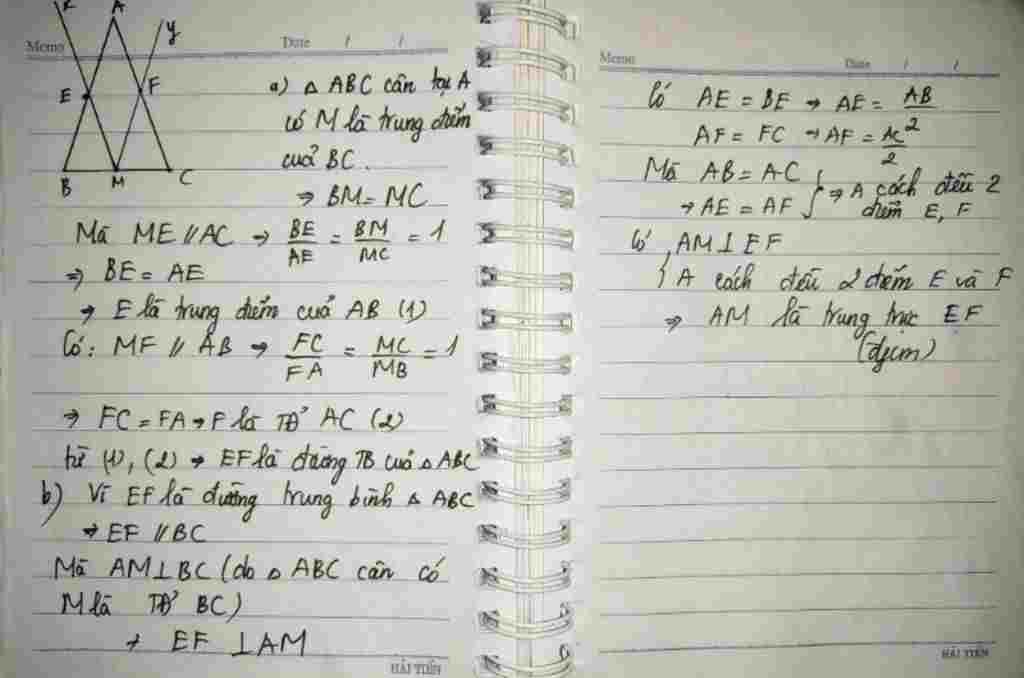 x A y
Memo Date / /
E F
B M C
a) △ ABC cân tại A
có M là trung điểm
cuả BC.
⇒ BM = MC
Mà ME // AC → BE/AE = BM/MC = 1
⇒ BE = AE
→ E là trung điểm cuả AB (1)
Có: MF // AB → FC/FA = MC/MB = 1
⇒ FC = FA → F là TĐ AC (2)
từ (1), (2) → EF là đường TB cuả △ ABC
b) Vì EF là đường trung bình △ ABC
→ EF // BC
Mà AM ⊥ BC (do △ ABC cân có
M là TĐ BC)
→ EF ⊥ AM
HẢI TIẾN
Memo Date / /
Có AE = BE → AE = AB/2
AF = FC → AF = AC/2
Mà AB = AC
→ AE = AF } ⇒ A cách đều 2
điểm E, F
Có { AM ⊥ EF
A cách đều 2 điểm E và F
⇒ AM là trung trực EF
(đpcm)
HẢI TIẾN